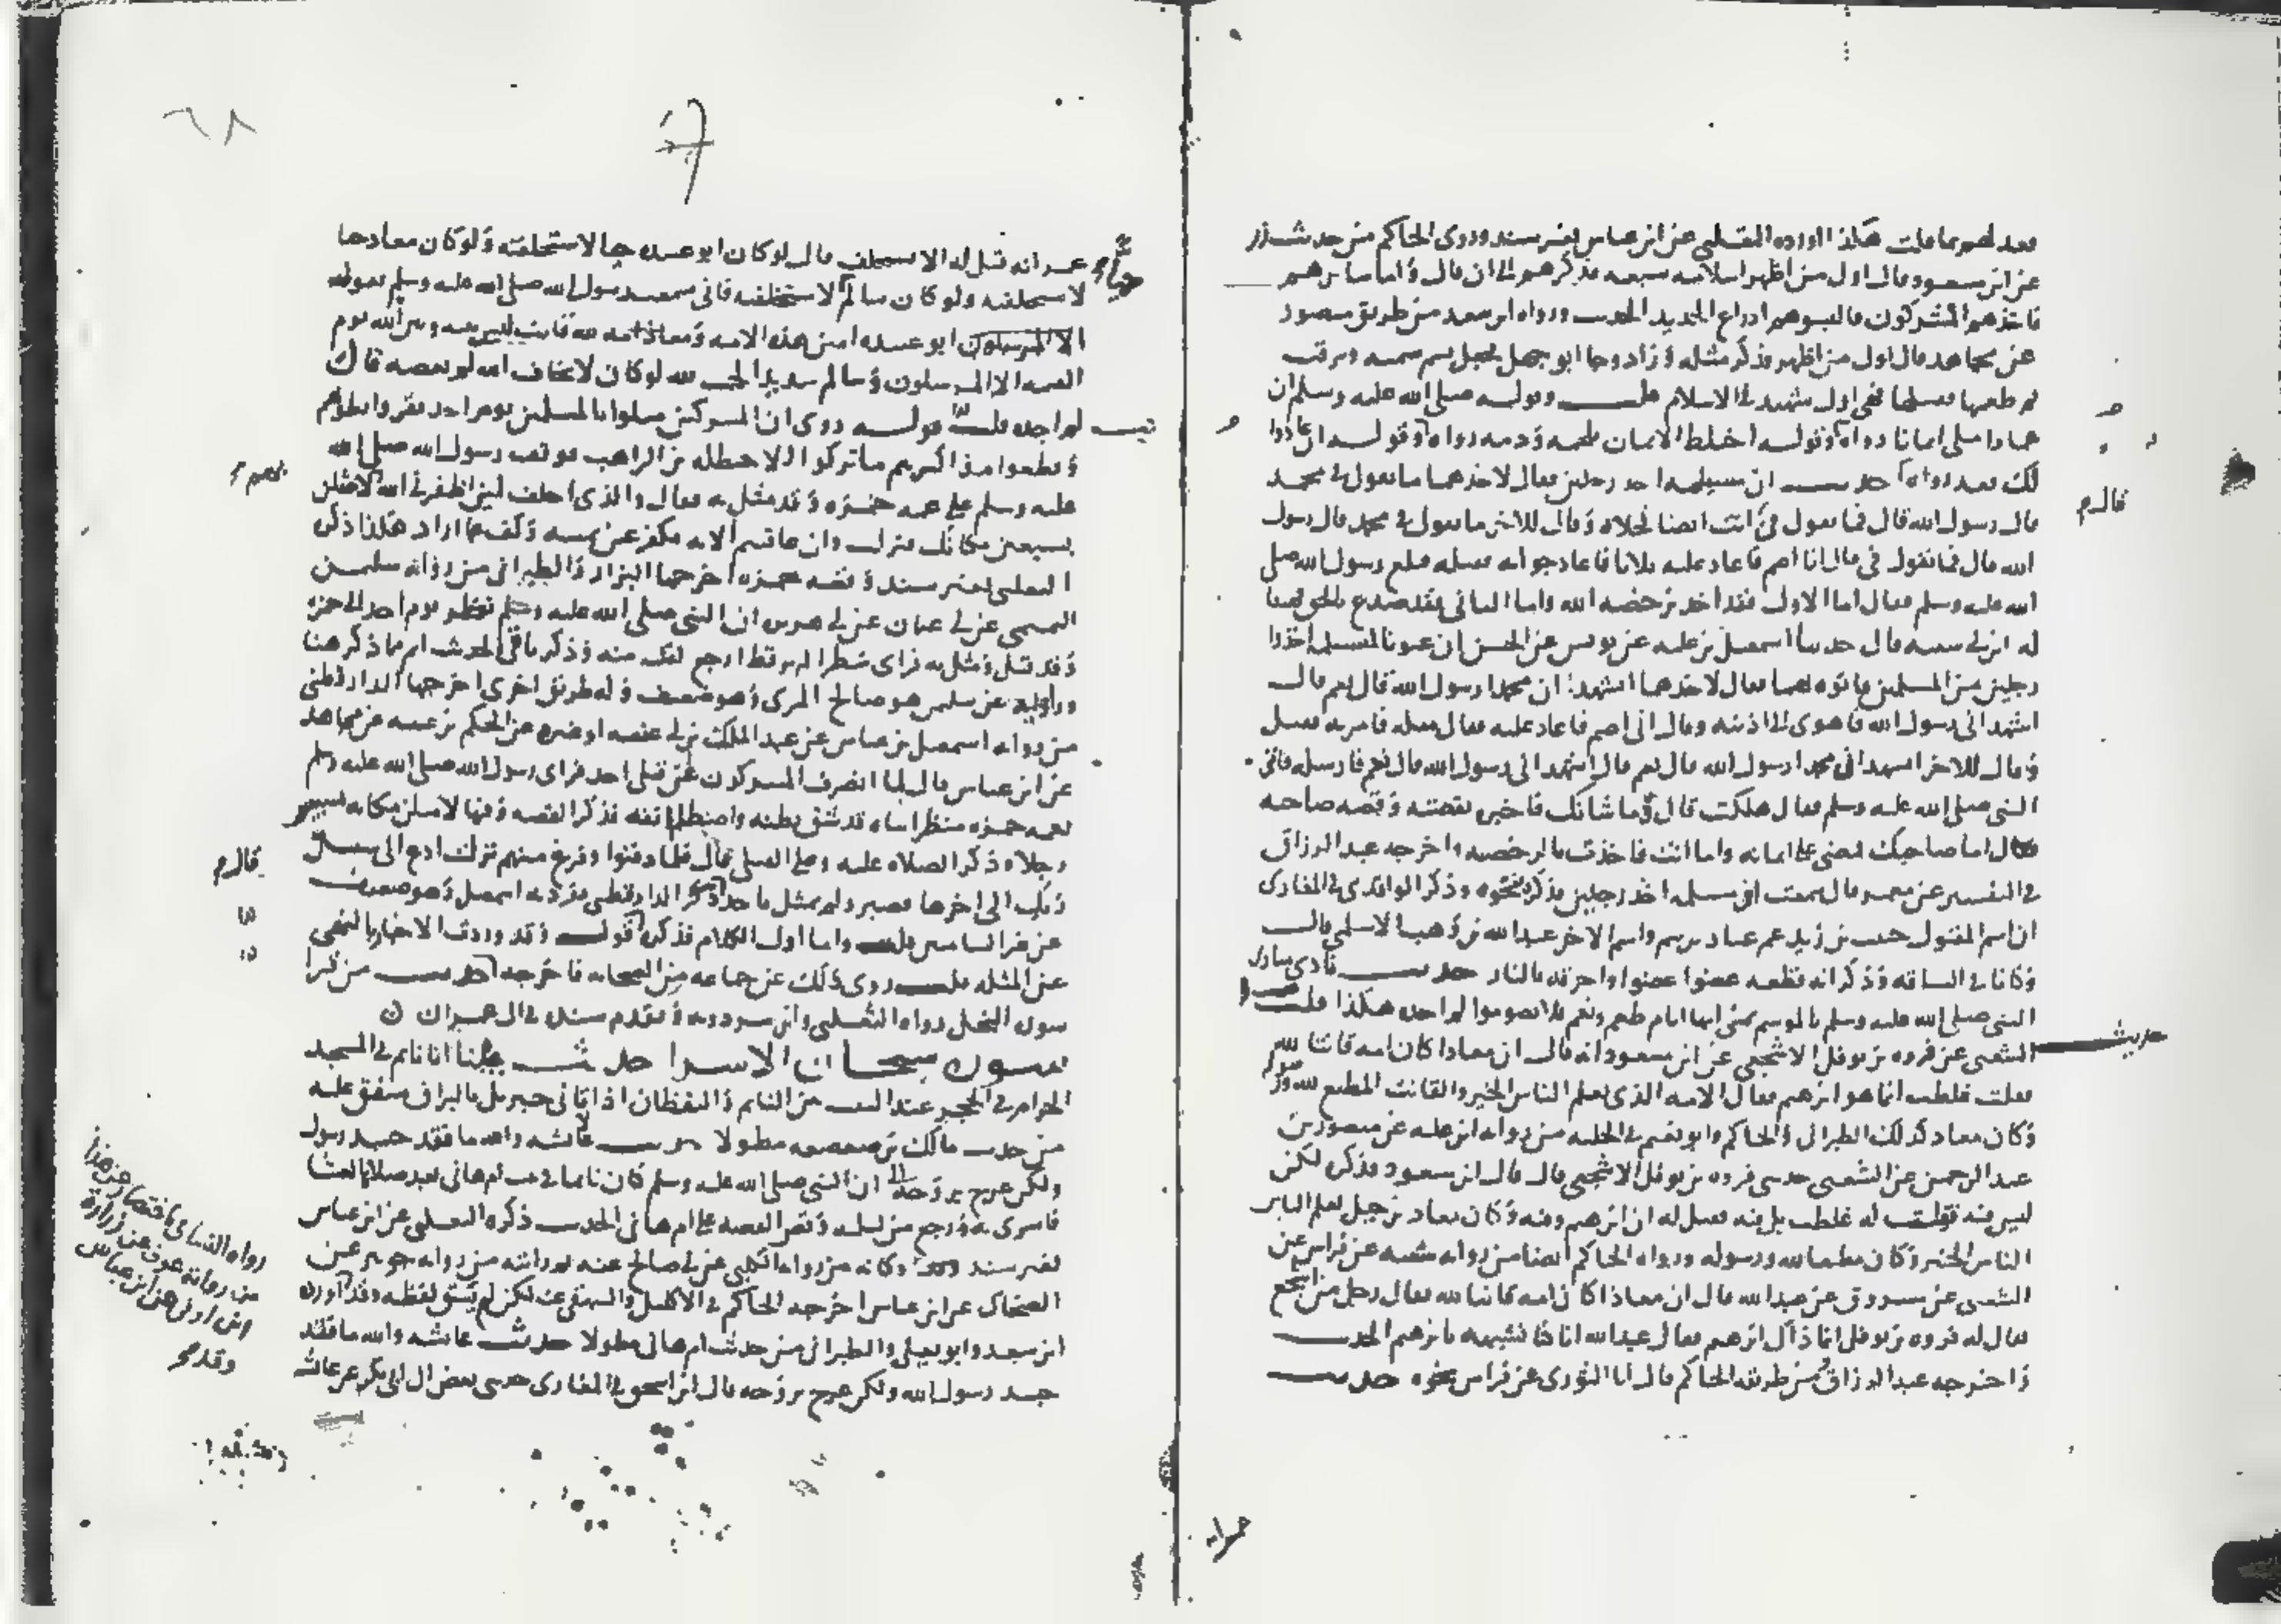 فعد لهم بما قلت هكذا اورده الثعلبي عن ابن عباس بغير سند وروى الحاكم من حديث زر
عن ابن مسعود قال اول من اظهر اسلامه سبعة فذكرهم الى ان قال واما سايرهم
فاخذهم المشركون فالبسوهم ادراع الحديد الحديث ورواه ابن سعد من طريق منصور
عن مجاهد قال اول من اظهر فذكر مثله وزاد وجا ابو جهل فجعل يشتم سمية ويرفث
ثم طعنها فقتلها فهي اول شهيد في الاسلام قلت وقوله صلى الله عليه وسلم ان
عمارا ملى ايمانا رواه وقوله اختلط الايمان بلحمه ودمه رواه وقوله ان عادوا
لك فعد رواه حديث ان مسيلمة اخذ رجلين فقال لاحدهما ما تقول في محمد
قال رسول الله قال فما تقول في قال انت ايضا فخلاه وقال للاخر ما تقول في محمد قال رسول
الله قال فما تقول في قال انا اصم فاعاد عليه ثلاثا فاعاد جوابه فقتله فبلغ رسول الله صلى
الله عليه وسلم فقال اما الاول فقد اخذ برخصة الله واما الثاني فقد صدع بالحق فهنيا
له ابن ابي شيبة قال حدثنا اسمعيل بن علية عن يونس عن الحسن ان عيونا لمسيلمة اخذوا
رجلين من المسلمين فاتوه بهما فقال لاحدهما اتشهد ان محمدا رسول الله قال نعم قال
اتشهد اني رسول الله فاهوى الى اذنيه وقال اني اصم فاعاد عليه فقال مثله فامر به فقتل
وقال للاخر اتشهد ان محمدا رسول الله قال نعم قال اتشهد اني رسول الله قال نعم فارسله فاتى
النبي صلى الله عليه وسلم فقال هلكت قال وما شانك فاخبره بقصته وقصة صاحبه
فقال اما صاحبك فمضى على ايمانه واما انت فاخذت بالرخصة واخرجه عبد الرزاق
في التفسير عن معمر قال سمعت ان مسيلمة اخذ رجلين فذكره بنحوه وذكر الواقدي في المغازي
ان اسم المقتول حبيب بن زيد عم عباد بن تميم واسم الاخر عبد الله بن وهب الاسلمي قال
وكانا في الساقة وذكر انه قطعه عضوا عضوا واحرقه بالنار حديث نادى منادي
النبي صلى الله عليه وسلم بالموسم بمنى انها ايام طعم ونعم فلا تصوموا لم اجده هكذا قلت
حديث الشعبي عن فروة بن نوفل الاشجعي عن ابن مسعود انه قال ان معاذا كان امة قانتا لله
فقلت غلطت انما هو ابرهيم فقال الامة الذي يعلم الناس الخير والقانت المطيع لله ورسوله
وكان معاذ كذلك الطبراني والحاكم وابو نعيم في الحلية من رواية ابن علية عن منصور بن
عبد الرحمن عن الشعبي حدثني فروة بن نوفل الاشجعي قال قال ابن مسعود فذكره لكن
ليس فيه فقلت له غلطت بل فيه فقيل له ان ابرهيم وفيه وكان معاذ بن جبل يعلم الناس
الناس الخير وكان مطيعا لله ورسوله ورواه الحاكم ايضا من رواية شعبة عن فراس عن
الشعبي عن مسروق عن عبد الله قال ان معاذا كان امة قانتا لله فقال رجل من اشجع
يقال له فروة بن نوفل انما ذاك ابرهيم فقال عبد الله انا كنا نشبهه بابرهيم الحديث
واخرجه عبد الرزاق ومن طريقه الحاكم قال انا الثوري عن فراس نحوه حديث
قال م
عمر انه قيل له الا تستخلف قال لو كان ابو عبيدة حيا لاستخلفته ولو كان معاذ حيا
لاستخلفته ولو كان سالم لاستخلفته فاني سمعت رسول الله صلى الله عليه وسلم يقول
ابو عبيدة امين هذه الامة ومعاذ امة لله قانت ليس بينه وبين الله يوم
القيمة الا المرسلون وسالم شديد الحب لله لو كان لا يخاف الله لم يعصه قال
لم اجده قلت قوله روى ان المشركين مثلوا بالمسلمين يوم احد بقروا بطونهم
وقطعوا مذاكيرهم ما تركوا الا حنظلة بن الراهب فوقف رسول الله صلى الله
عليه وسلم على عمه حمزة وقد مثل به فقال والذي احلف لئن اظفرني الله لامثلن
بسبعين مكانك فنزلت وان عاقبتم الاية فكفر عن يمينه وكف عما اراد هكذا ذكره
الثعلبي بغير سند وقصة حمزة اخرجها البزار والطبراني من رواية سليمن
التيمي عن ابي عثمان عن ابي هريرة ان النبي صلى الله عليه وسلم نظر يوم احد الى حمزة
وقد قتل ومثل به فراى منظرا لم ير قط اوجع لقلبه منه وذكر باقي الحديث اتم مما ذكر هنا
وراويه عن سليمن هو صالح المري وهو ضعيف وله طريق اخرى اخرجها الدارقطني
من رواية اسمعيل بن عياش عن عبد الملك بن ابي غنية او غيره عن الحكم بن عتيبة عن مجاهد
عن ابن عباس قال لما انصرف المشركون عن قتلى احد فراى رسول الله صلى الله عليه وسلم
بعمه حمزة منظرا ساه قد شق بطنه واصطلم انفه فذكر القصة وفيها لامثلن مكانه بسبعين
رجلا وذكر الصلاة عليه وعلى القتلى قال فلما دفنوا وفرغ منهم نزلت ادع الى سبيل
ربك الى اخرها فصبر ولم يمثل باحد ذكر الدارقطني تفرد به اسمعيل وهو ضعيف
عن غير الشاميين قلت واما اول الكلام فذكره قوله وقد وردت الاخبار بالنهي
عن المثلة قلت روى ذلك عن جماعة من الصحابة فاخرجه حديث من قرا
سورة النحل رواه الثعلبي وابن مردويه وتقدم سنده في ال عمران
سورة سبحان الاسرا حديث بينا انا نايم في المسجد
الحرام في الحجر عند البيت بين النايم واليقظان اذ اتاني جبريل بالبراق متفق عليه
من حديث مالك بن صعصعة مطولا حديث عايشة والله ما فقد جسد رسول
ولكن عرج بروحه ان النبي صلى الله عليه وسلم كان نايما في بيت ام هاني بعد صلاة العشا
فاسرى به ورجع من ليلته وقص القصة على ام هاني الحديث ذكره الثعلبي عن ابن عباس
بغير سند وكانه من رواية الكلبي عن ابي صالح عنه ثم رايته من رواية جويبر عن
الضحاك عن ابن عباس اخرجه الحاكم في الاكليل والبيهقي عنه لكن لم يسق لفظه وقد اورده
ابن سعد وابو يعلى والطبراني من حديث ام هاني مطولا حديث عايشة والله ما فقد
جسد رسول الله ولكن عرج بروحه قال ابن اسحق في المغازي حدثني بعض ال ابي بكر عن عايشة
قال م
رواه النسائي باختصار عن هذا
من رواية عوف عن زرارة
بن اوفى عن ابن عباس
٦٨